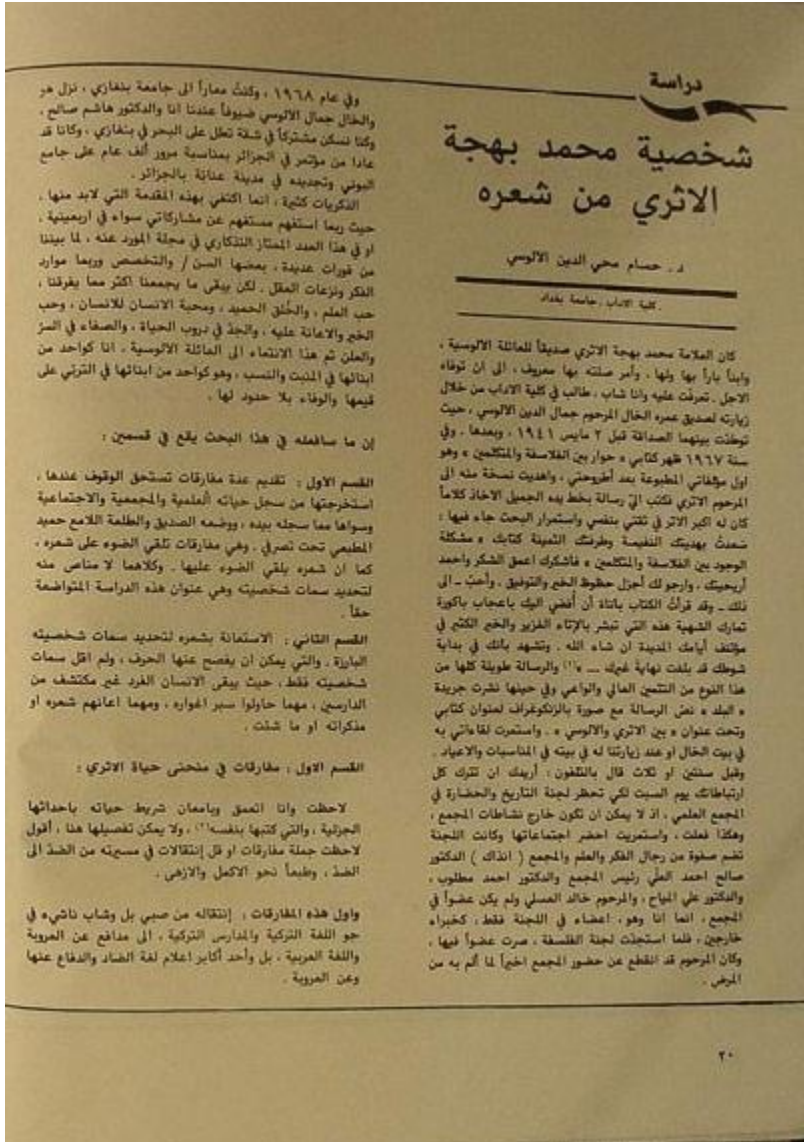 دراسة
شخصية محمد بهجة
الاثري من شعره
د. حسام محي الدين الآلوسي
كلية الاداب، جامعة بغداد
كان العلامة محمد بهجة الاثري صديقاً للعائلة الآلوسية ،
وابناً باراً بها ولها ، وأمر صلته بها معروف ، الى ان توفاه
الاجل . تعرفت عليه وانا شاب ، طالب في كلية الاداب من خلال
زيارته لصديق عمره الخال المرحوم جمال الدين الآلوسي ، حيث
توطدت بينهما الصداقة قبل ٢ مايس ١٩٤١ ، وبعدها . وفي
سنة ١٩٦٧ ظهر كتابي « حوار بين الفلاسفة والمتكلمين » وهو
اول مؤلفاتي المطبوعة بعد أطروحتي ، واهديت نسخة منه الى
المرحوم الاثري فكتب اليّ رسالة بخط يده الجميل الاخاذ كلاماً
كان له اكبر الاثر في ثقتي بنفسي واستمرار البحث جاء فيها :
سُعدتُ بهديتك النفيسة وطرفتك الثمينة كتابك « مشكلة
الوجود بين الفلاسفة والمتكلمين » فأشكرك اعمق الشكر واحمد
أريحيتك ، وارجو لك أجزل حظوظ الخير والتوفيق ، وأحبّ ـ الى
ذلك ـ وقد قرأتُ الكتاب باناة أن أُفضي اليك باعجاب باكورة
ثمارك الشهية هذه التي تبشر بالإتاء الغزير والخير الكثير في
مؤتنف أيامك المديدة ان شاء الله . وتشهد بأنك في بداية
شوطك قد بلغت نهاية غيرك ... »(١) والرسالة طويلة كلها من
هذا النوع من التثمين العالي والواعي وفي حينها نشرت جريدة
« البلد » نص الرسالة مع صورة بالزنكوغراف لعنوان كتابي
وتحت عنوان « بين الاثري والآلوسي » . واستمرت لقاءاتي به
في بيت الخال او عند زيارتنا له في بيته في المناسبات والاعياد .
وقبل سنتين او ثلاث قال بالتلفون : أريدك ان تترك كل
ارتباطاتك يوم السبت لكي تحظر لجنة التأريخ والحضارة في
المجمع العلمي ، اذ لا يمكن ان تكون خارج نشاطات المجمع ،
وهكذا فعلت ، واستمريت احضر اجتماعاتها وكانت اللجنة
تضم صفوة من رجال الفكر والعلم والمجمع ( انذاك ) الدكتور
صالح احمد العلّي رئيس المجمع والدكتور احمد مطلوب ،
والدكتور علي المياح ، والمرحوم خالد العسلي ولم يكن عضواً في
المجمع ، انما انا وهو ، اعضاء في اللجنة فقط ، كخبراء
خارجين ، فلما استجدّت لجنة الفلسفة ، صرت عضواً فيها ،
وكان المرحوم قد انقطع عن حضور المجمع اخيراً لما ألم به من
المرض .
وفي عام ١٩٦٨ ، وكنتُ معاراً الى جامعة بنغازي ، نزل هو
والخال جمال الآلوسي ضيوفاً عندنا انا والدكتور هاشم صالح ،
وكنا نسكن مشتركاً في شقة تطل على البحر في بنغازي ، وكانا قد
عادا من مؤتمر في الجزائر بمناسبة مرور ألف عام على جامع
البوني وتجديده في مدينة عنابة بالجزائر .
الذكريات كثيرة ، انما اكتفي بهذه المقدمة التي لابد منها ،
حيث ربما استفهم مستفهم عن مشاركاتي سواء في اربعينية ،
او في هذا العدد الممتاز التذكاري في مجلة المورد عنه ، لما بيننا
من فورات عديدة ، بعضها السن / والتخصص وربما موارد
الفكر ونزعات العقل . لكن يبقى ما يجمعنا اكثر مما يفرقنا ،
حب العلم ، والخُلق الحميد ، ومحبة الانسان للانسان ، وحب
الخير والاعانة عليه ، والجدّ في دروب الحياة ، والصفاء في السرّ
والعلن ثم هذا الانتماء الى العائلة الآلوسية . انا كواحد من
ابنائها في المنبت والنسب ، وهو كواحد من ابنائها في التربّي على
قيمها والوفاء بلا حدود لها .
إن ما سافعله في هذا البحث يقع في قسمين :
القسم الاول : تقديم عدة مفارقات تستحق الوقوف عندها ،
استخرجتها من سجل حياته العلمية والمجمعية والاجتماعية
وسواها مما سجله بيده ، ووضعه الصديق والطلعة اللامع حميد
المطبعي تحت تصرفي . وهي مفارقات تلقي الضوء على شعره ،
كما ان شعره يلقي الضوء عليها . وكلاهما لا مناص منه
لتحديد سمات شخصيته وهي عنوان هذه الدراسة المتواضعة
حقاً .
القسم الثاني : الاستعانة بشعره لتحديد سمات شخصيته
البارزة . والتي يمكن ان يفصح عنها الحرف ، ولم اقل سمات
شخصيته فقط ، حيث يبقى الانسان الفرد غير مكتشف من
الدارسين ، مهما حاولوا سبر اغواره ، ومهما اعانهم شعره او
مذكراته او ما شئت .
القسم الاول : مفارقات في منحنى حياة الاثري :
لاحظت وانا اتعمق وبامعان شريط حياته باحداثها
الجزئية ، والتي كتبها بنفسه(٢) ، ولا يمكن تفصيلها هنا ، أقول
لاحظت جملة مفارقات او قل إنتقالات في مسيرته من الضدّ الى
الضدّ ، وطبعاً نحو الاكمل والازهى .
واول هذه المفارقات : إنتقاله من صبي بل وشاب ناشيء في
جو اللغة التركية والمدارس التركية ، الى مدافع عن العروبة
واللغة العربية ، بل وأحد أكابر اعلام لغة الضاد والدفاع عنها
وعن العروبة .
٢٠